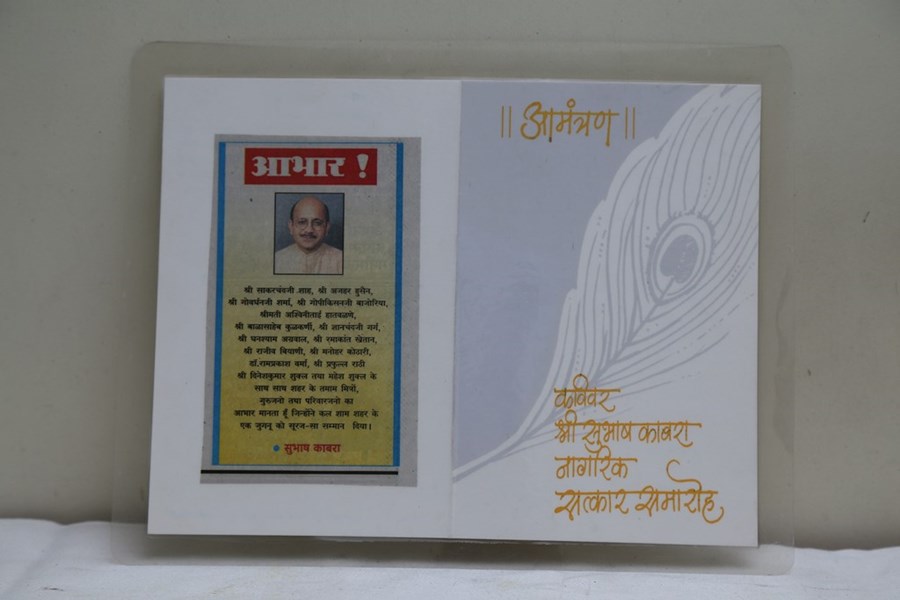 आभार !
श्री साकरचंदजी शाह, श्री अजहर हुसैन,
श्री गोवर्धनजी शर्मा, श्री गोपीकिसनजी बाजोरिया,
श्रीमती अश्विनीताई हातवळणे,
श्री बाळासाहेब कुळकर्णी, श्री ज्ञानचंदजी गर्ग,
श्री घनश्याम अग्रवाल, श्री रमाकांत खेतान,
श्री राजीव बियाणी, श्री मनोहर कोठारी,
डॉ.रामप्रकाश वर्मा, श्री प्रफुल्ल राठी
श्री दिनेशकुमार शुक्ल तथा महेश शुक्ल के
साथ साथ शहर के तमाम मित्रों,
गुरुजनो तथा परिवारजनो का
आभार मानता हूँ जिन्होंने कल शाम शहर के
एक जुगनू को सूरज-सा सम्मान दिया।
सुभाष काबरा
|| आमंत्रण ||
कविवर
श्री सुभाष काबरा
नागरिक
सत्कार समारोह